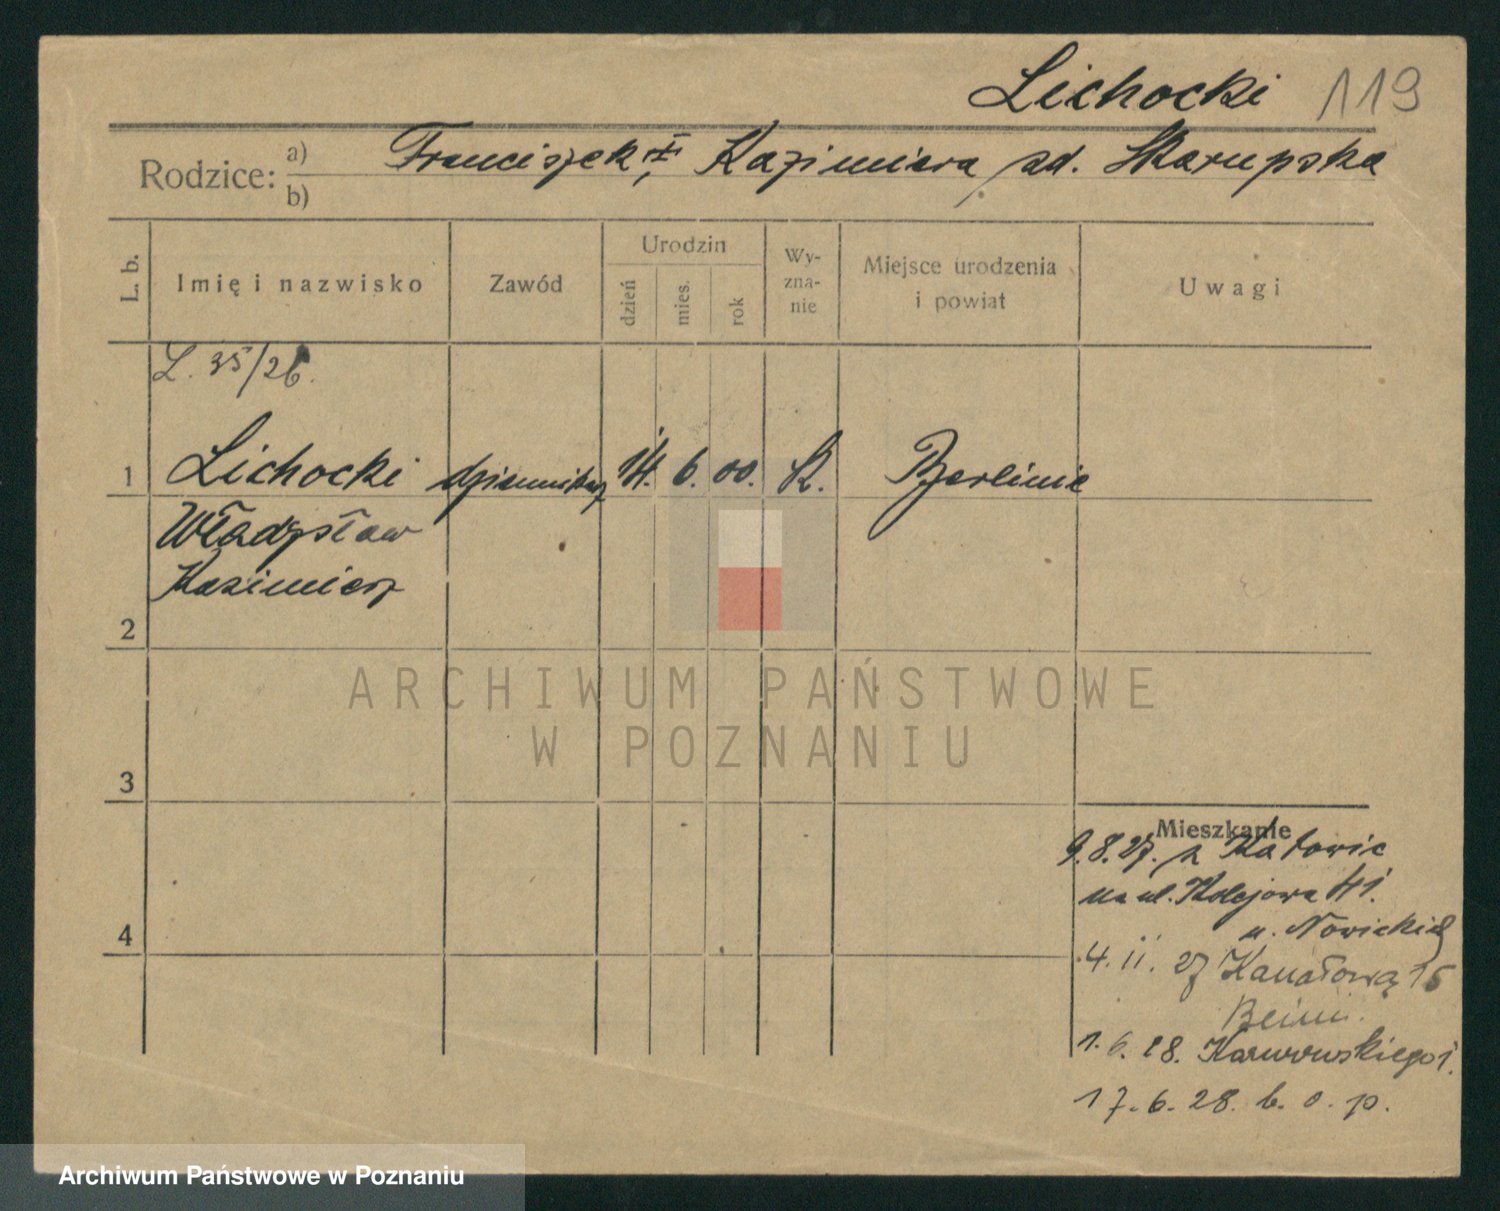 Lichocki 119
Rodzice: a) b) Franciszek, Kazimiera zd. Skarupska
L. b.
Imię i nazwisko
Zawód
Urodzin
dzień
mies.
rok
Wy-
zna-
nie
Miejsce urodzenia
i powiat
Uwagi
L. 35/26.
1 Lichocki dziennikarz 14. 6. 00. K. Berlinie
Władysław
Kazimierz
2
ARCHIWUM PAŃSTWOWE
W POZNANIU
3
Mieszkanie
9.8.27. z Katowic
na ul. Kolejowa 41.
u. Nowickiej
4
4. 11. 27 Kanałową 15
1. 6. 28.
17. 6. 28. b. o. p.
Archiwum Państwowe w Poznaniu